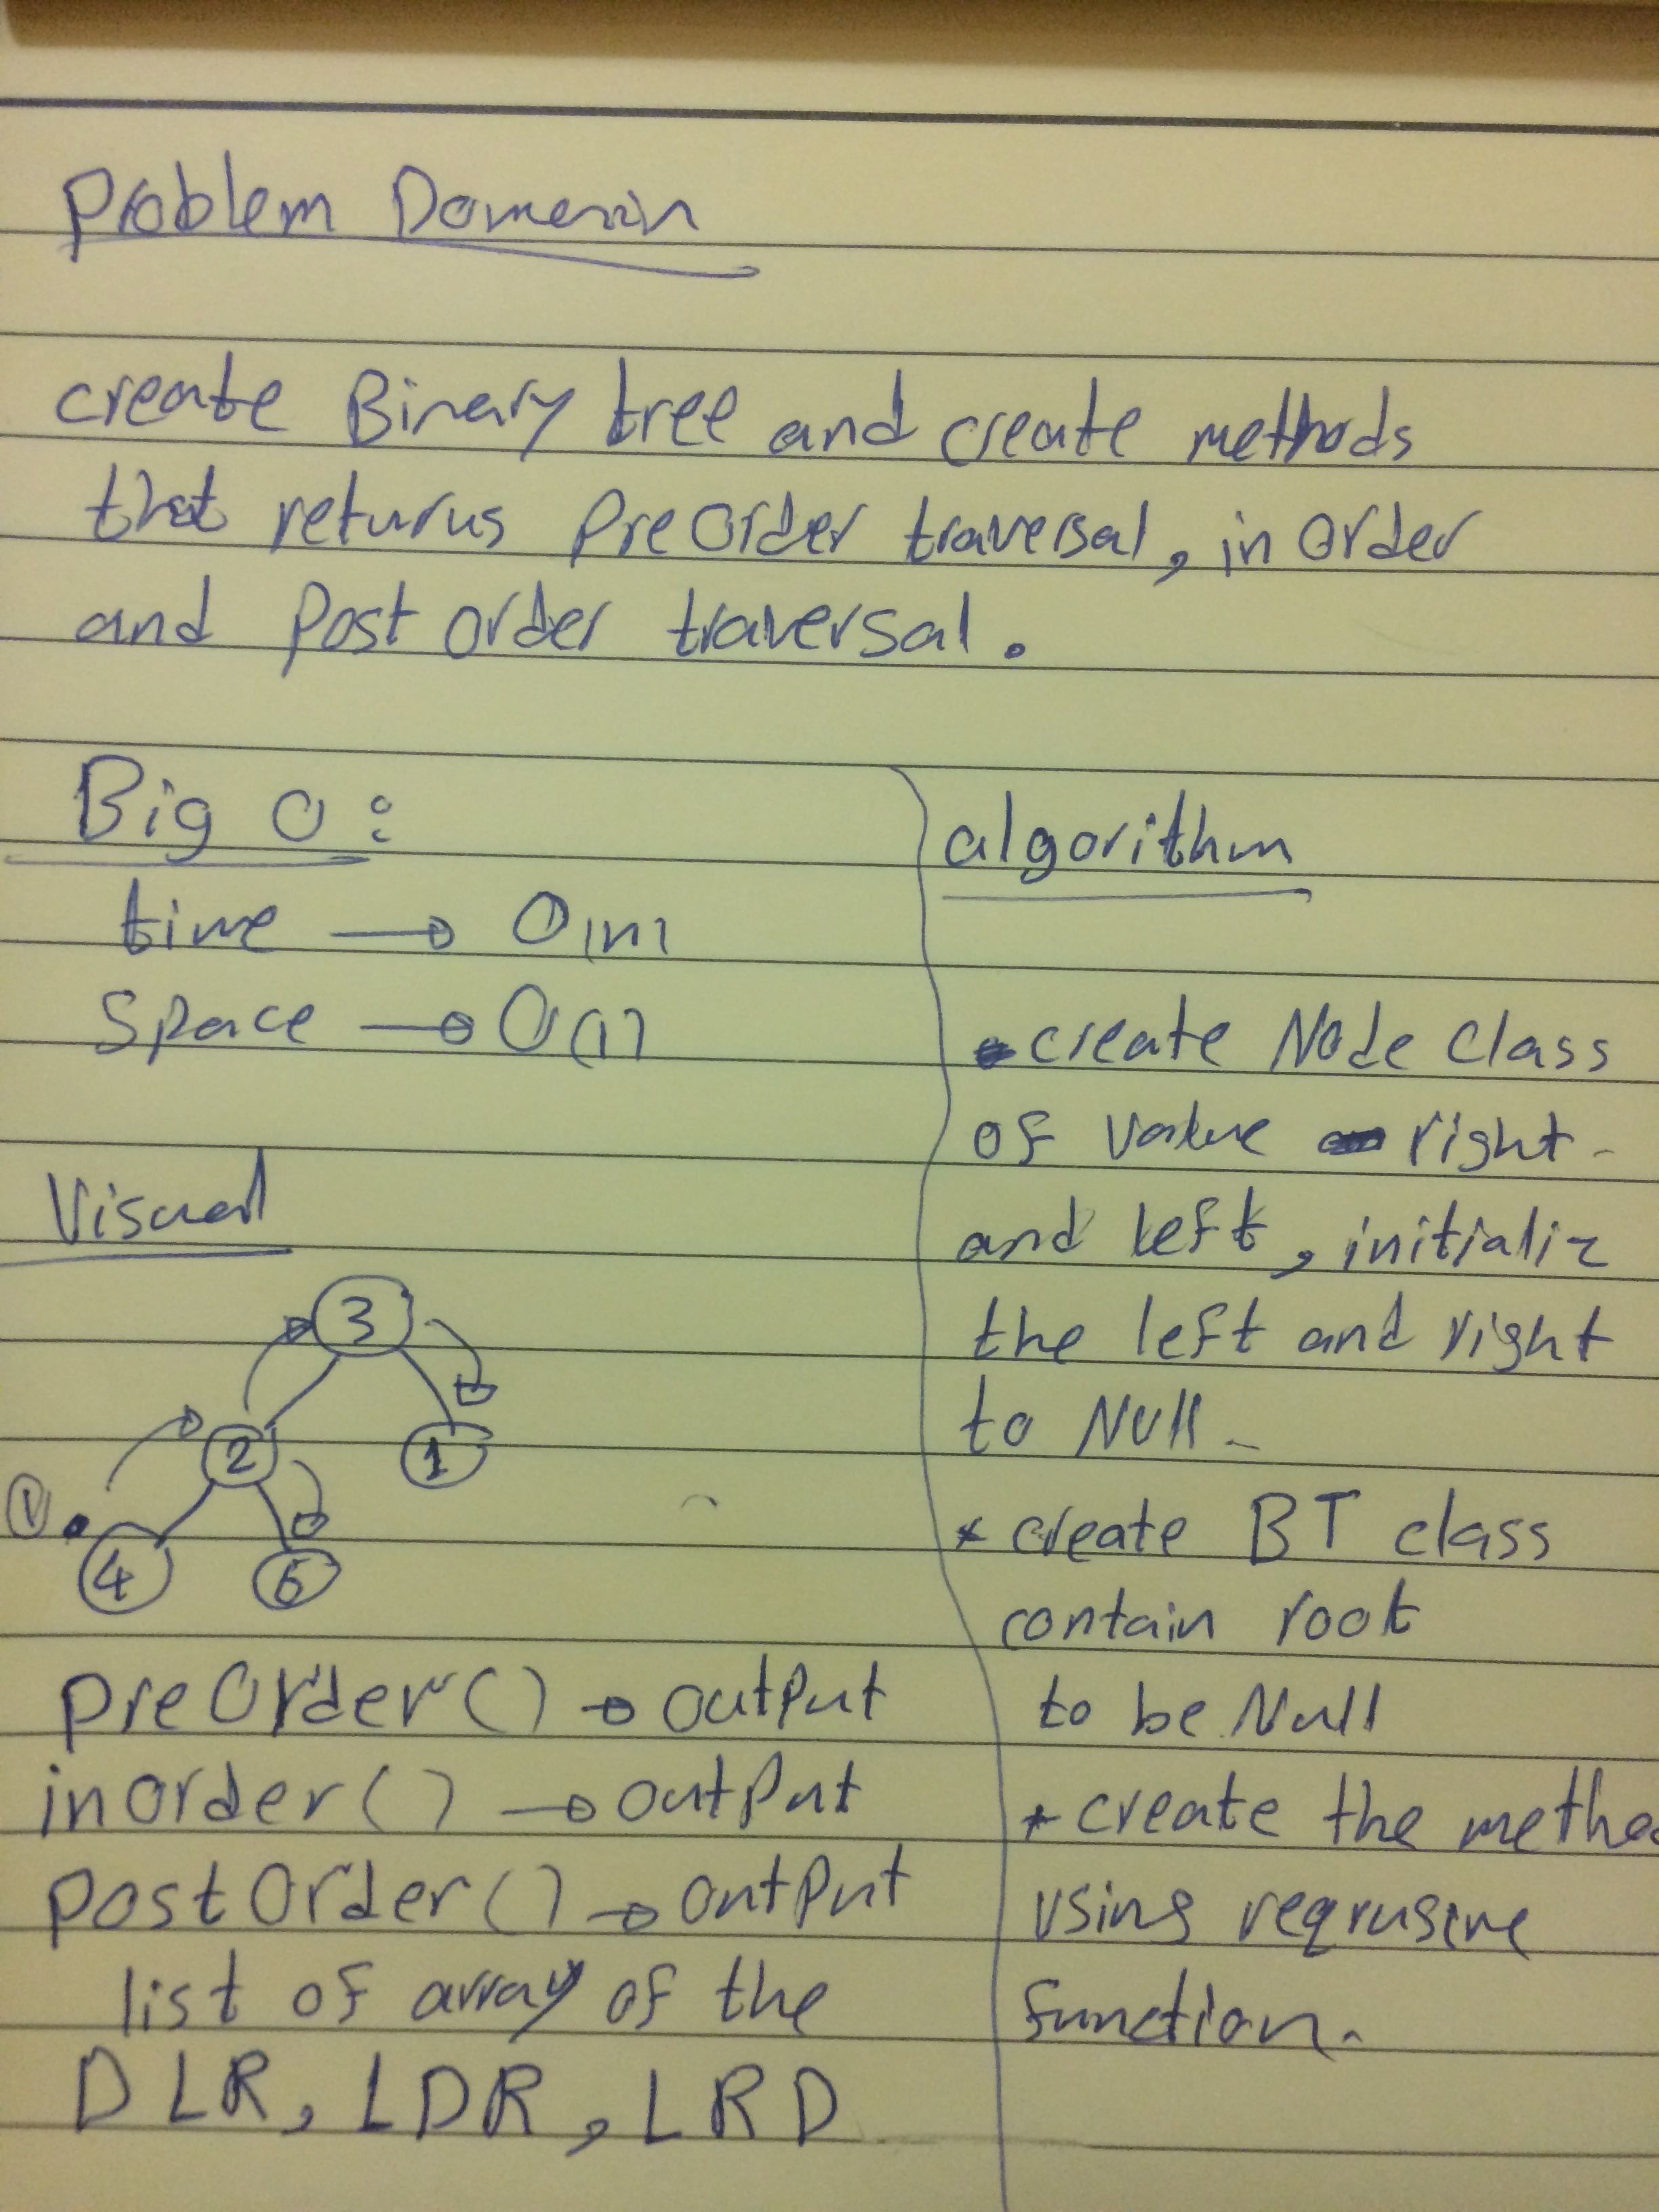 Problem Domain
create Binary tree and create methods
that returus PreOrder traversal, in Order
and Post order traversal.
Big O:
time → O(n)
Space → O(1)
Visual
3
2 1
1
4 5
preOrder() → output
inorder() → output
postOrder() → output
list of array of the
DLR, LDR, LRD
algorithm
* create Node Class
of value right
and left, initializ
the left and right
to Null.
* create BT class
contain root
to be Null
* create the metho
using reqrusive
function.